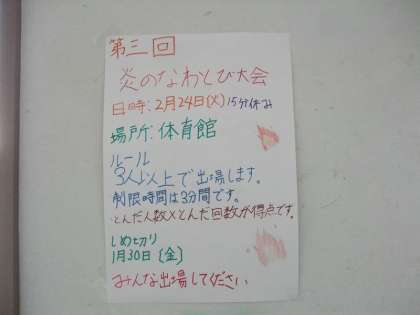 第三回
炎のなわとび大会
日時:2月24日(火)15分休み
場所:体育館
ルール
3人以上で出場します。
制限時間は3分間です。
とんだ人数×とんだ回数が得点です。
しめ切り
1月30日(金)
みんな出場してください